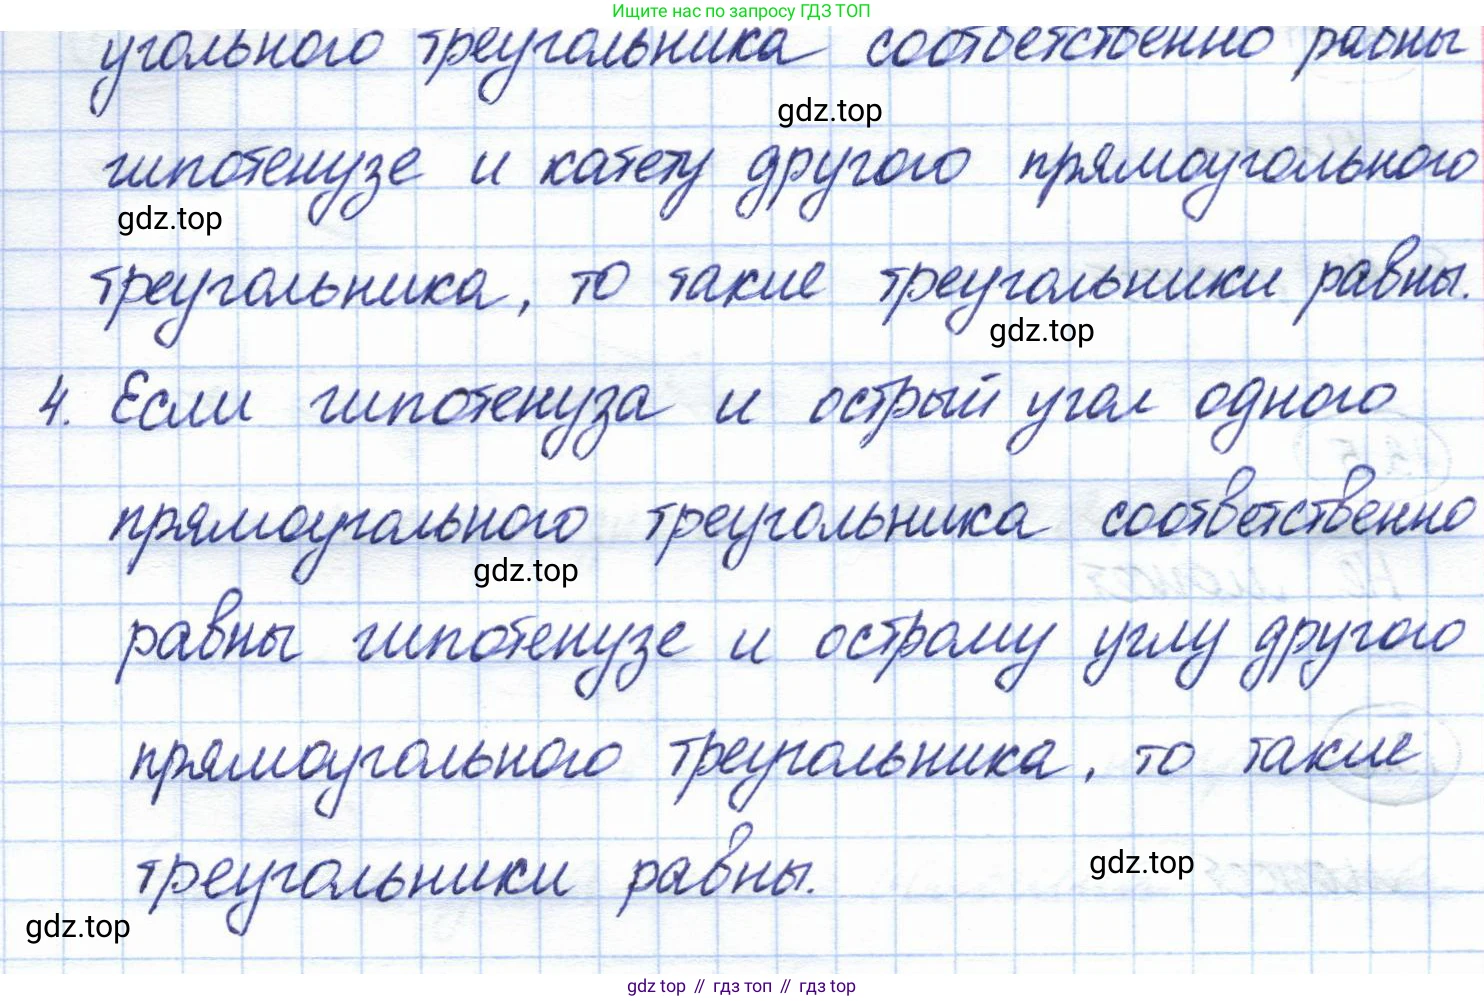 Ищите нас по запросу ГДЗ ТОП
угольного треугольника соответственно равны
gdz.top
гипотенузе и катету другого прямоугольного
gdz.top
треугольника, то такие треугольники равны.
gdz.top
4. Если гипотенуза и острый угол одного
прямоугольного треугольника соответственно
gdz.top
равны гипотенузе и острому углу другого
прямоугольного треугольника, то такие
треугольники равны.
gdz.top
gdz.top
gdz top // гдз топ // гдз top